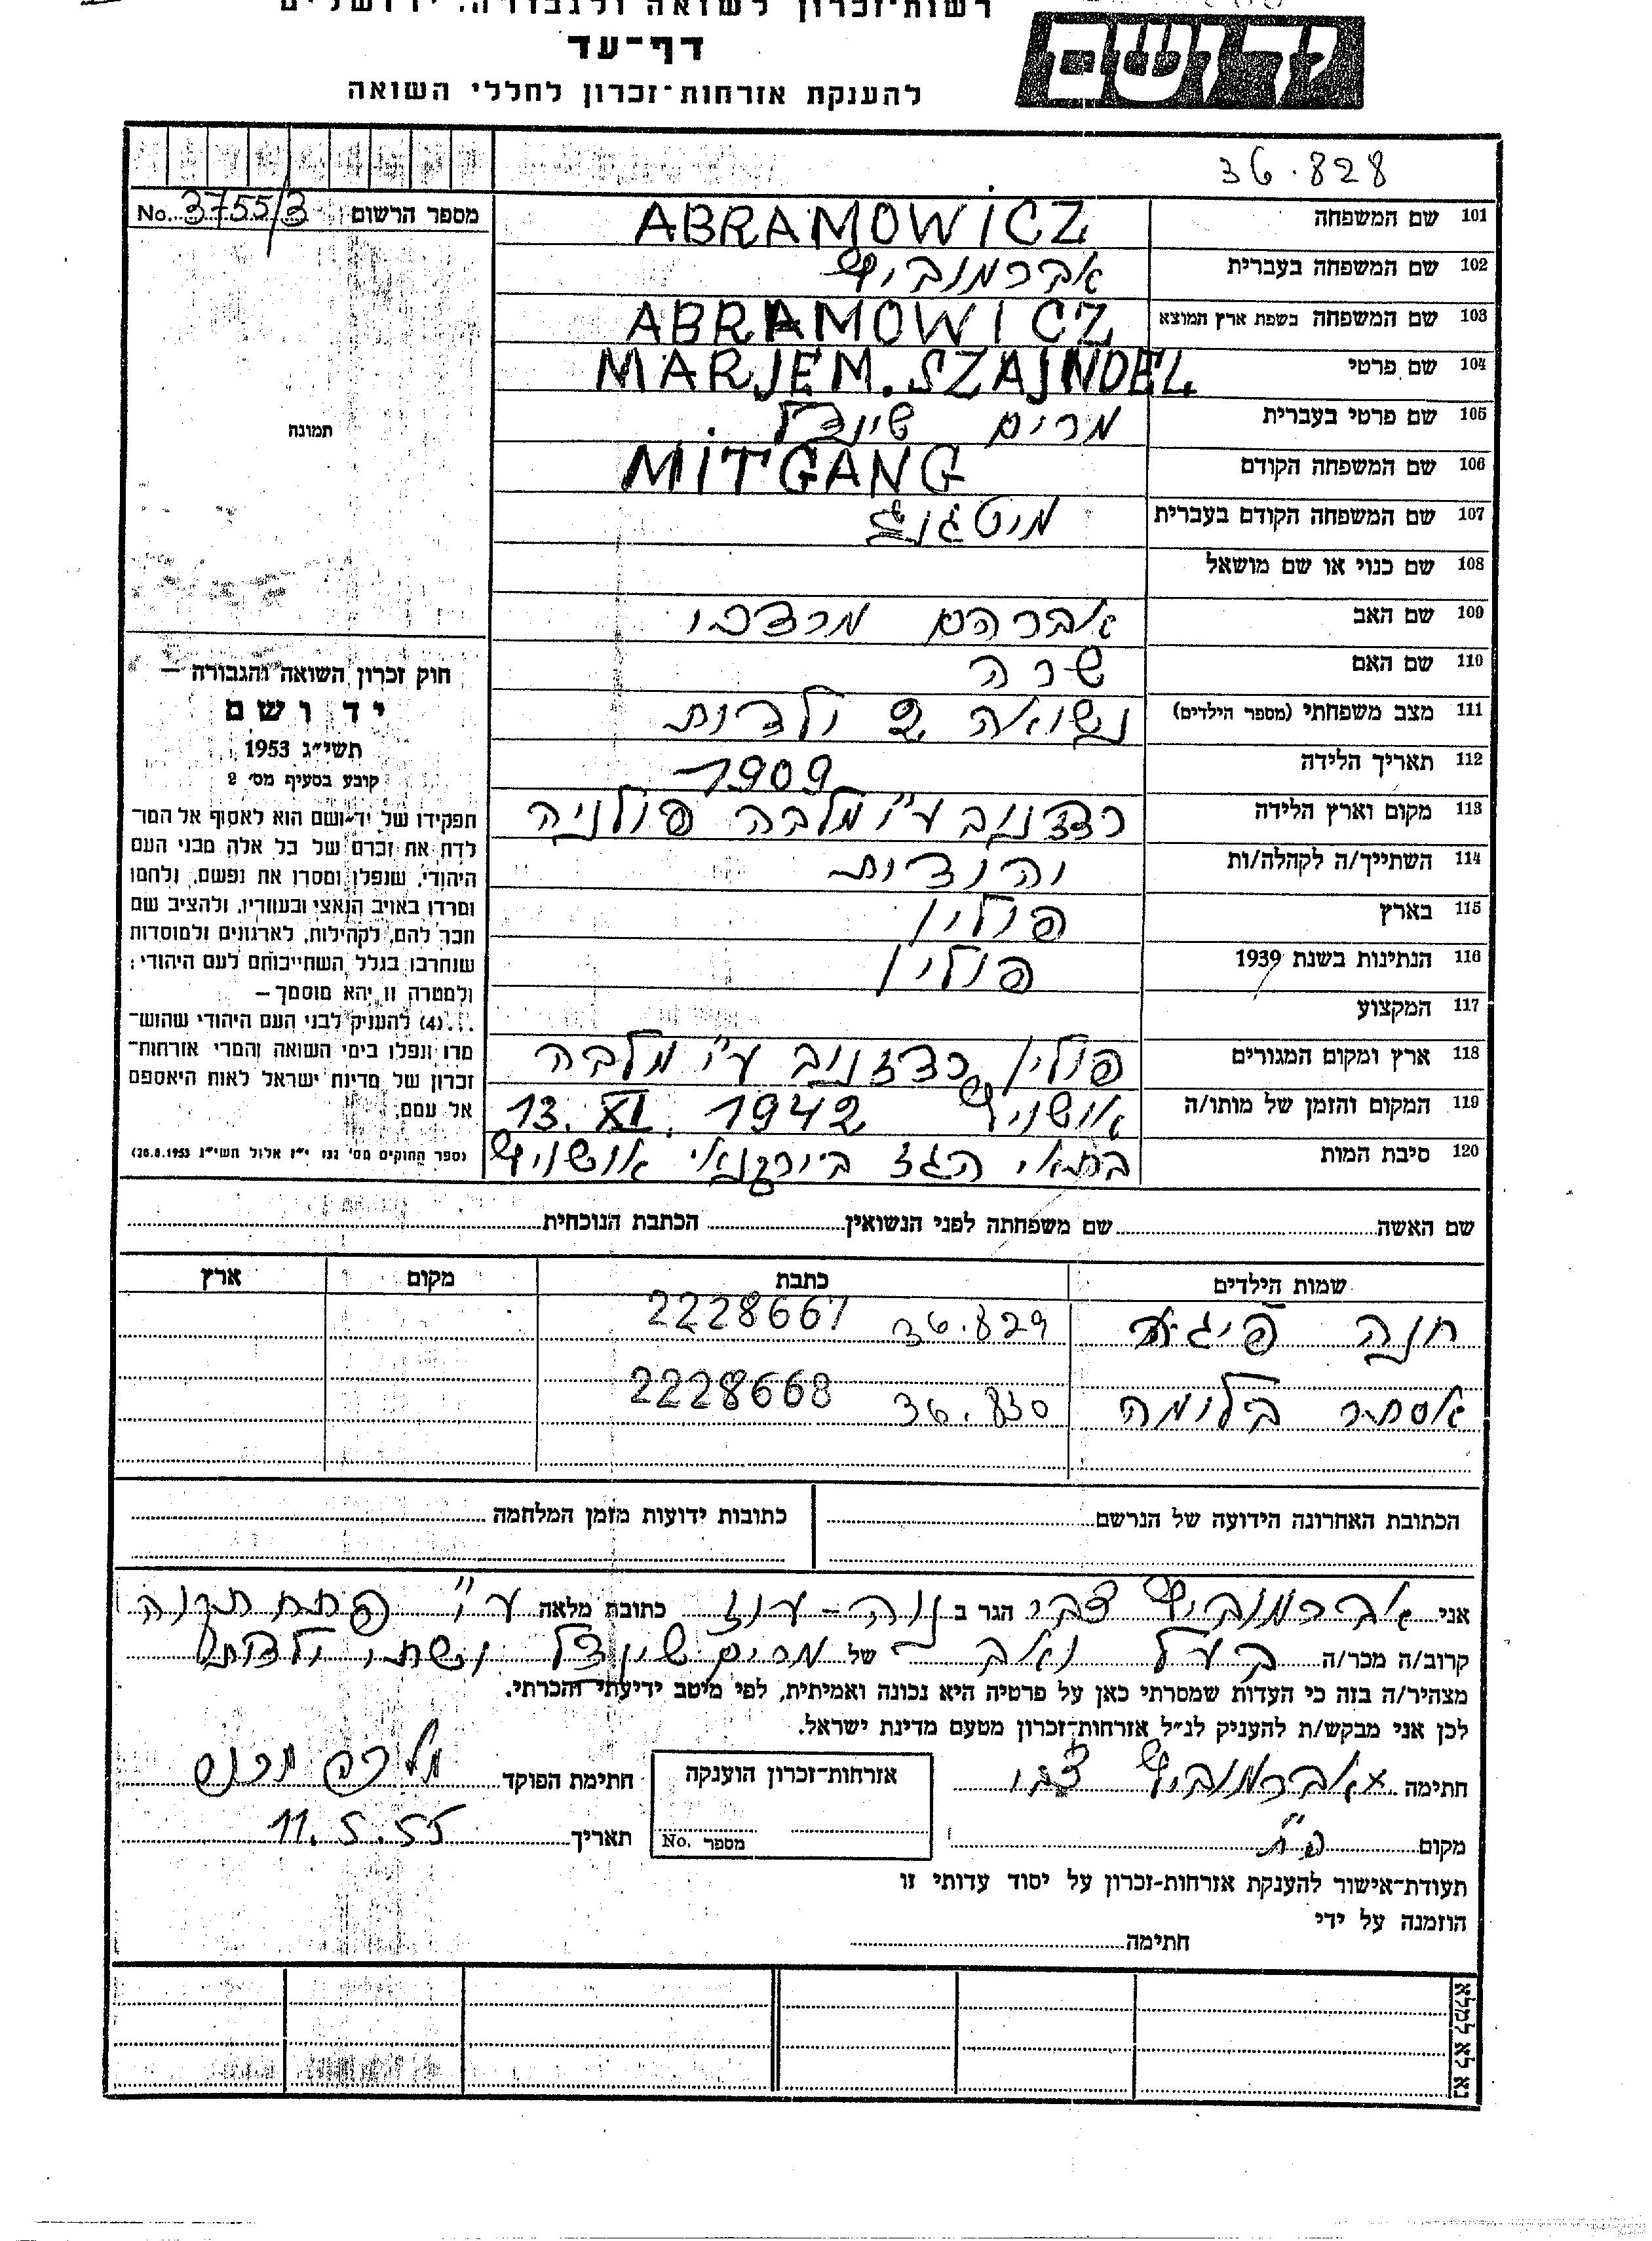 רשות־זכרון לשואה ולגבורה, ירושלים
דף־עד
להענקת אזרחות־זכרון לחללי השואה
יד ושם
36.828
מספר הרשום No. 3755/3
101 שם המשפחה ABRAMOWICZ
102 שם המשפחה בעברית אברמוביץ
103 שם המשפחה בשפת ארץ המוצא ABRAMOWICZ
104 שם פרטי MARJEM. SZAJNDEL
105 שם פרטי בעברית מרים שינדל
106 שם המשפחה הקודם MITGANG
107 שם המשפחה הקודם בעברית מיטגנג
108 שם כנוי או שם מושאל
109 שם האב אברהם מרדכי
110 שם האם שרה
111 מצב משפחתי (מספר הילדים) נשואה 2 ילדות
112 תאריך הלידה 1909
113 מקום וארץ הלידה רדזנוב ע"י מלבה פולניה
114 השתייך/ה לקהלה/ות יהודית
115 בארץ פולין
116 הנתינות בשנת 1939 פולין
117 המקצוע
118 ארץ ומקום המגורים פולין רדזנוב ע"י מלבה
119 המקום והזמן של מותו/ה אושויץ 13.XI.1942
120 סיבת המות בתאי הגז בירקנאי אושויץ
תמונה
חוק זכרון השואה והגבורה —
יד ושם
תשי״ג 1953
קובע בסעיף מס׳ 2
תפקידו של יד־ושם הוא לאסוף אל המו־
לדת את זכרם של כל אלה מבני העם
היהודי, שנפלו ומסרו את נפשם, נלחמו
ומרדו באויב הנאצי ובעוזריו, ולהציב שם
וזכר להם, לקהילות, לארגונים ולמוסדות
שנחרבו בגלל השתייכותם לעם היהודי;
ולמטרה זו יהא מוסמך—
...(4) להעניק לבני העם היהודי שהוש־
מדו ונפלו בימי השואה והמרי אזרחות־
זכרון של מדינת ישראל לאות היאספם
אל עמם.
(ספר החוקים מס׳ 132 י״ז אלול תשי״ג 28.8.1953)
שם האשה שם משפחתה לפני הנשואין הכתבת הנוכחית
שמות הילדים כתבת מקום ארץ
חנה פיגא 36.829 2228667
אסתר בלומה 36.830 2228668
הכתובת האחרונה הידועה של הנרשם כתובות ידועות מזמן המלחמה
אני אברמוביץ צבי הגר ב נוה-עוז כתובת מלאה ע"י פתח תקוה
קרוב/ה מכר/ה בעל ואב של מרים שינדל ושתי ילדותי
מצהיר/ה בזה כי העדות שמסרתי כאן על פרטיה היא נכונה ואמיתית, לפי מיטב ידיעתי והכרתי.
לכן אני מבקש/ת להעניק לנ״ל אזרחות־זכרון מטעם מדינת ישראל.
חתימה אברמוביץ צבי אזרחות־זכרון הוענקה חתימת הפוקד
מקום פ"ת מספר No. תאריך 11.5.55
תעודת־אישור להענקת אזרחות־זכרון על יסוד עדותי זו
הוזמנה על ידי
חתימה
נא לא למלא